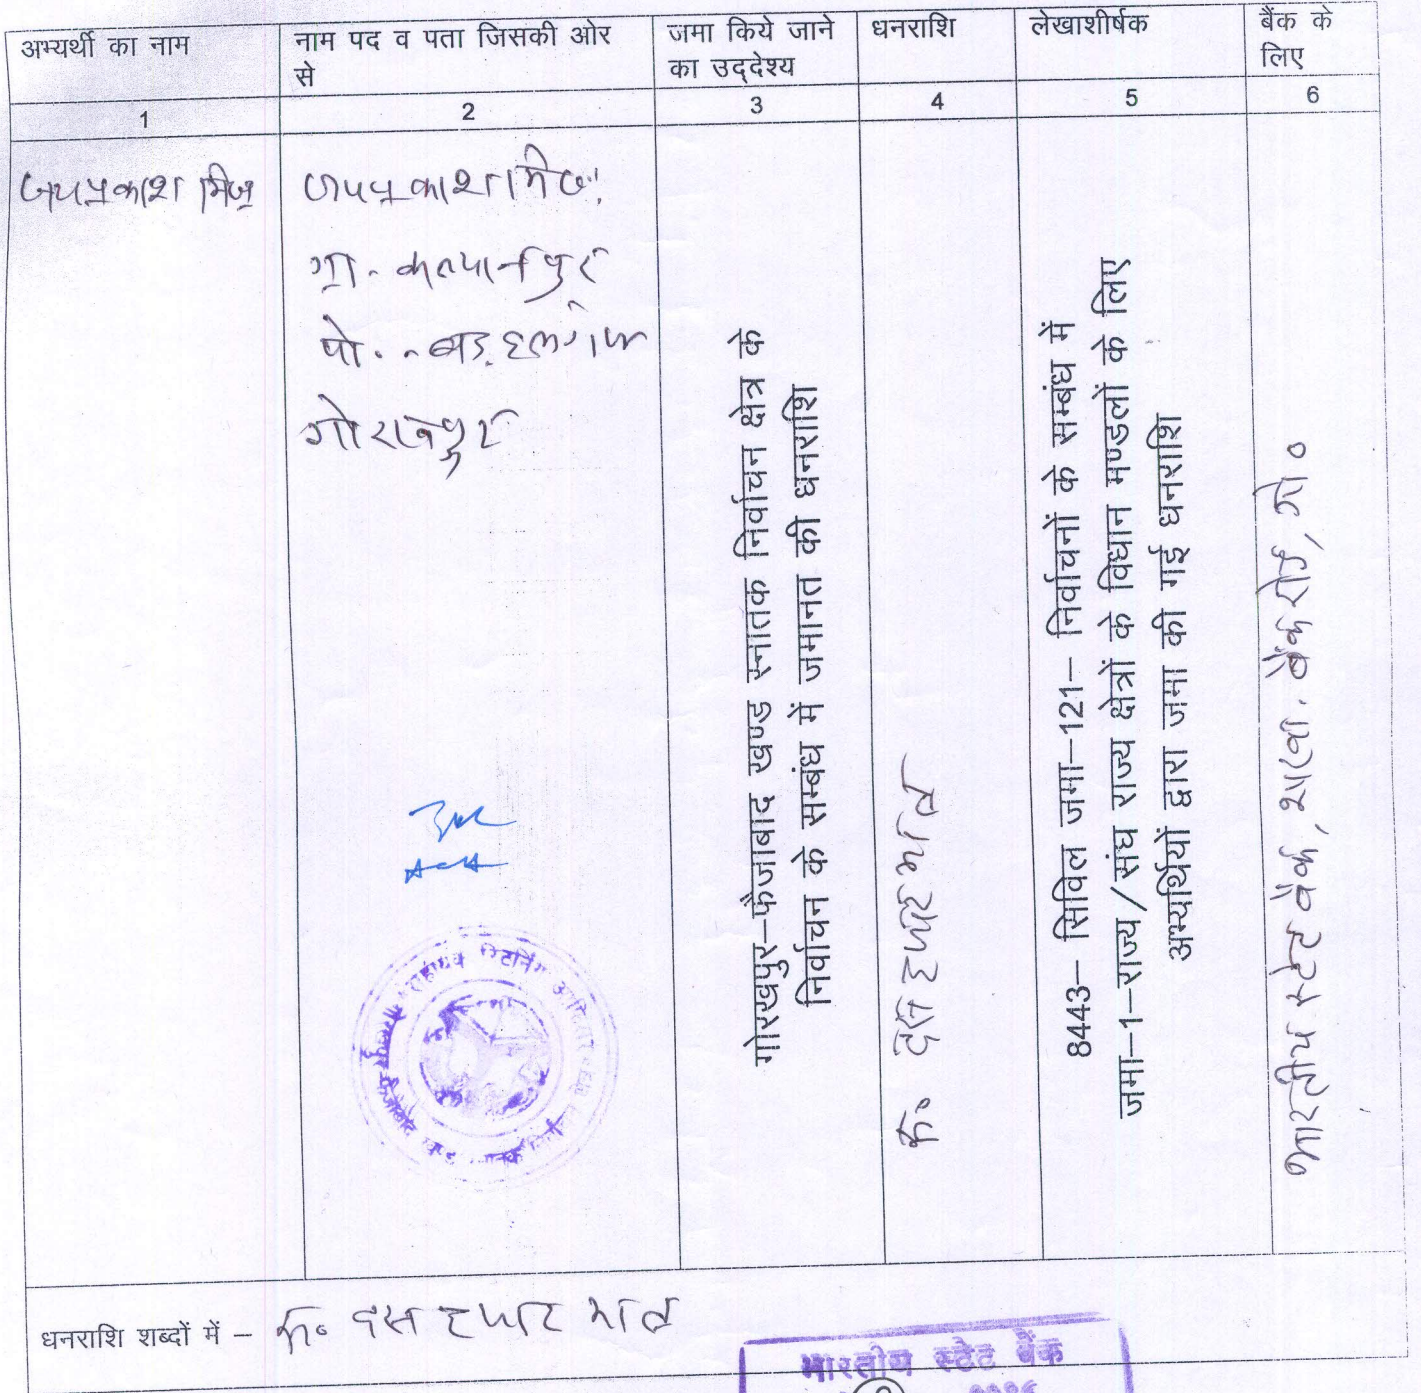 अभ्यर्थी का नाम
नाम पद व पता जिसकी ओर
से
जमा किये जाने
का उद्देश्य
धनराशि
लेखाशीर्षक
बैंक के
लिए
1
2
3
4
5
6
जयप्रकाश मिश्र
जयप्रकाश मिश्र
ग्रा. कल्यानपुर
पो. - बड़हलगंज
गोरखपुर
गोरखपुर–फैजाबाद खण्ड स्नातक निर्वाचन क्षेत्र के
निर्वाचन के सम्बंध में जमानत की धनराशि
रू० दस हजार मात्र
8443– सिविल जमा–121– निर्वाचनों के सम्बंध में
जमा–1–राज्य/संघ राज्य क्षेत्रों के विधान मण्डलों के लिए
अभ्यर्थियों द्वारा जमा की गई धनराशि
भारतीय स्टेट बैंक, शाखा. बैंक रोड, गो०
धनराशि शब्दों में – रू० दस हजार मात्र
भारतीय स्टेट बैंक